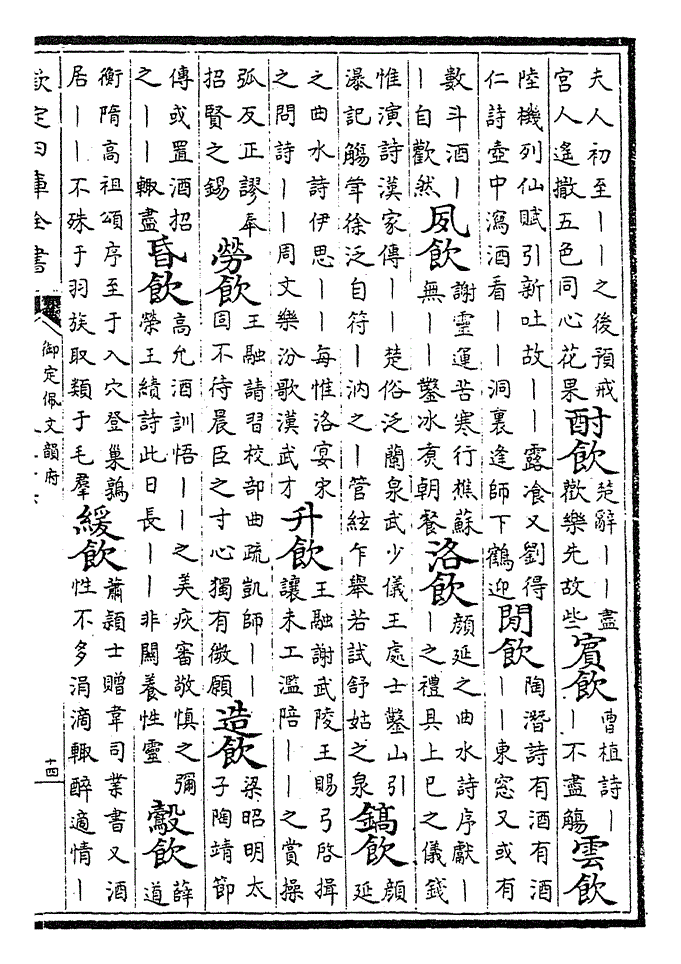 夫人初至｜｜之後預戒
宮人遙撒五色同心花果
酎飲
楚辭｜｜盡
歡樂先故些
賓飲
曹植詩｜
｜不盡觴
雲飲
陸機列仙賦引新吐故｜｜露飡又劉得
仁詩壺中瀉酒看｜｜洞裏逢師下鶴迎
閒飲
陶潛詩有酒有酒
｜｜東窓又或有
數斗酒｜
｜自歡然
夙飲
謝靈運苦寒行樵蘇
無｜｜鑿冰煮朝餐
洛飲
顔延之曲水詩序獻｜
｜之禮具上巳之儀錢
惟演詩漢家傳｜｜楚俗泛蘭泉武少儀王處士鑿山引
瀑記觴徐泛自符｜汭之｜管絃乍舉若試舒姑之泉
鎬飲
顔
延
之曲水詩伊思｜｜每惟洛宴宋
之問詩｜｜周文樂汾歌漢武才
升飲
王融謝武陵王賜弓啓揖
讓未工濫陪｜｜之賞操
弧反正謬奉
招賢之錫
勞飲
王融請習校部曲疏凱師｜｜
固不待晨臣之寸心獨有微願
造飲
梁昭明太
子陶靖節
傳或置酒招
之｜｜輒盡
昏飲
高允酒訓悟｜｜之美疢審敬慎之彌
榮王績詩此日長｜｜非關養性靈
鷇飲
薛
道
衡隋高祖頌序至于入穴登巢鶉
居｜｜不殊于羽族取類于毛羣
緩飲
蕭穎士贈韋司業書又酒
性不多涓滴輒醉適情｜
欽定四庫全書
御定佩文韻府
十四